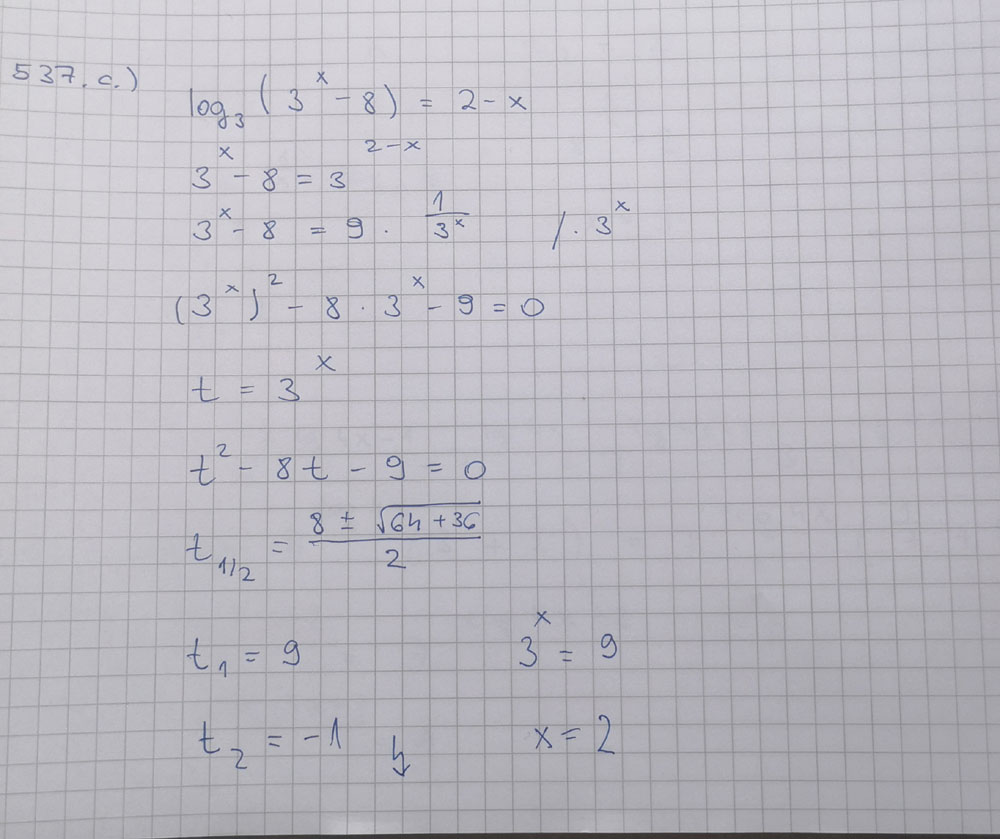 537. c.)
log₃ (3ˣ - 8) = 2 - x
3ˣ - 8 = 3²⁻ˣ
3ˣ - 8 = 9 · 1/3ˣ /· 3ˣ
(3ˣ)² - 8 · 3ˣ - 9 = 0
t = 3ˣ
t² - 8t - 9 = 0
t₁/₂ = (8 ± √(64 + 36))/2
t₁ = 9 3ˣ = 9
t₂ = -1 ↯ x = 2